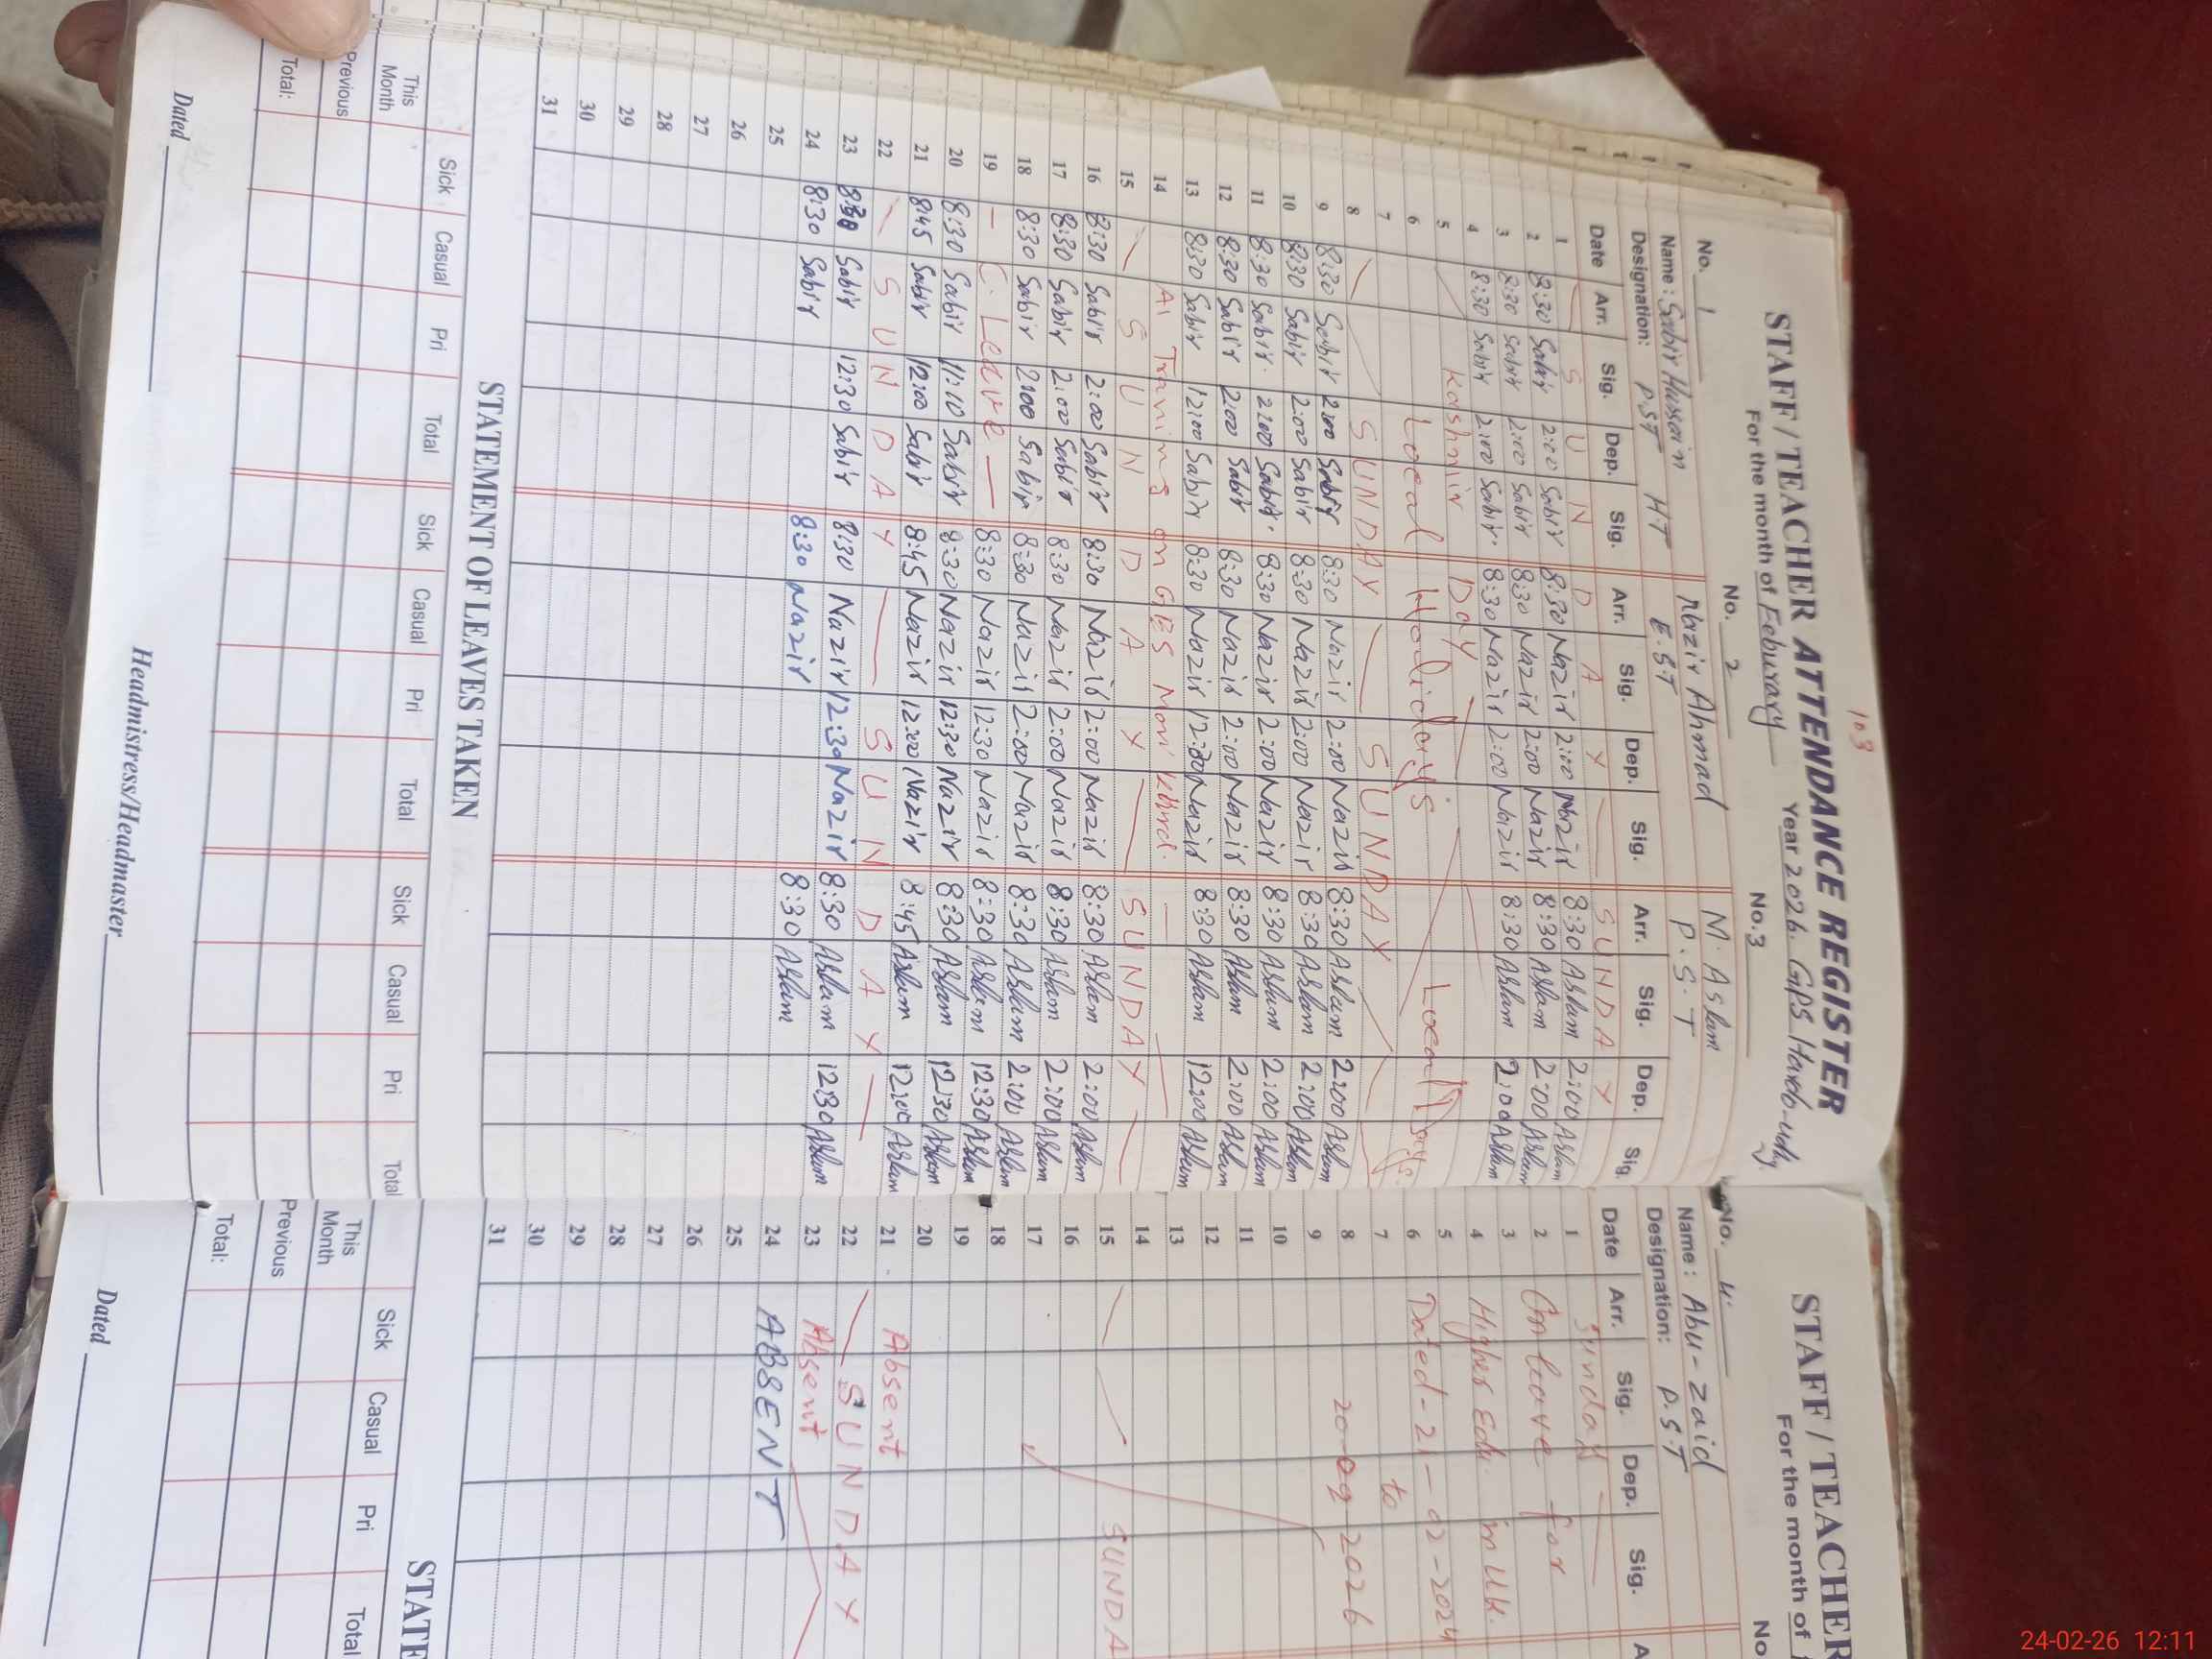 103
STAFF / TEACHER ATTENDANCE REGISTER
For the month of Feburary Year 2026. GPS
No. 1 No. 2 No. 3
Name : Sabir Hussain Nazir Ahmad M. Aslam
Designation: P.ST HT E.ST P.S.T
Date Arr. Sig. Dep. Sig. Arr. Sig. Dep. Sig. Arr. Sig. Dep. Sig.
1 S U N D A Y SUNDAY
2 8:30 Sabir 2:00 Sabir 8:30 Nazir 2:00 Nazir 8:30 Aslam 2:00 Aslam
3 8:30 Sabir 2:00 Sabir 8:30 Nazir 2:00 Nazir 8:30 Aslam 2:00 Aslam
4 8:30 Sabir 2:00 Sabir. 8:30 Nazir 2:00 Nazir 8:30 Aslam 2:00 Aslam
5 Kashmir Day
6 Local Holidays Local
7
8 SUNDAY SUNDAY
9 8:30 Sabir 2:00 Sabir 8:30 Nazir 2:00 Nazir 8:30 Aslam 2:00 Aslam
10 8:30 Sabir 2:00 Sabir 8:30 Nazir 2:00 Nazir 8:30 Aslam 2:00 Aslam
11 8:30 Sabir. 2:00 Sabir. 8:30 Nazir 2:00 Nazir 8:30 Aslam 2:00 Aslam
12 8:30 Sabir 2:00 Sabir 8:30 Nazir 2:00 Nazir 8:30 Aslam 2:00 Aslam
13 8:30 Sabir 12:00 Sabir 8:30 Nazir 12:00 Nazir 8:30 Aslam 12:00 Aslam
14 AI Training on GES
15 S U N D A Y SUNDAY
16 8:30 Sabir 2:00 Sabir 8:30 Nazir 2:00 Nazir 8:30 Aslam 2:00 Aslam
17 8:30 Sabir 2:00 Sabir 8:30 Nazir 2:00 Nazir 8:30 Aslam 2:00 Aslam
18 8:30 Sabir 2:00 Sabir 8:30 Nazir 2:00 Nazir 8:30 Aslam 2:00 Aslam
19 – C. Leave — 8:30 Nazir 12:30 Nazir 8:30 Aslam 12:30 Aslam
20 8:30 Sabir 11:10 Sabir 8:30 Nazir 12:30 Nazir 8:30 Aslam 12:30 Aslam
21 8:45 Sabir 12:00 Sabir 8:45 Nazir 12:00 Nazir 8:45 Aslam 12:00 Aslam
22 S U N D A Y — S U N D A Y —
23 8:30 Sabir 12:30 Sabir 8:30 Nazir 12:30 Nazir 8:30 Aslam 12:30 Aslam
24 8:30 Sabir 8:30 Nazir 8:30 Aslam
25
26
27
28
29
30
31
STATEMENT OF LEAVES TAKEN
Sick Casual Pri Total Sick Casual Pri Total Sick Casual Pri Total
This Month
Previous
Total:
Dated Headmistress/Headmaster
STAFF / TEACHER
For the month of
No. 4. No
Name : Abu-Zaid
Designation: P.S.T
Date Arr. Sig. Dep. Sig. A
1 Sunday
2 On leave for
3
4 Higher Edu. in Uk.
5
6 Dated - 21-02-2024
7 to
8 20-09-2026
9
10
11
12
13
14
15 SUNDA
16
17
18
19
20
21 Absent
22 SUNDAY
23 Absent
24 ABSENT
25
26
27
28
29
30
31
STATE
Sick Casual Pri Total
This Month
Previous
Total:
Dated
24-02-26 12:11